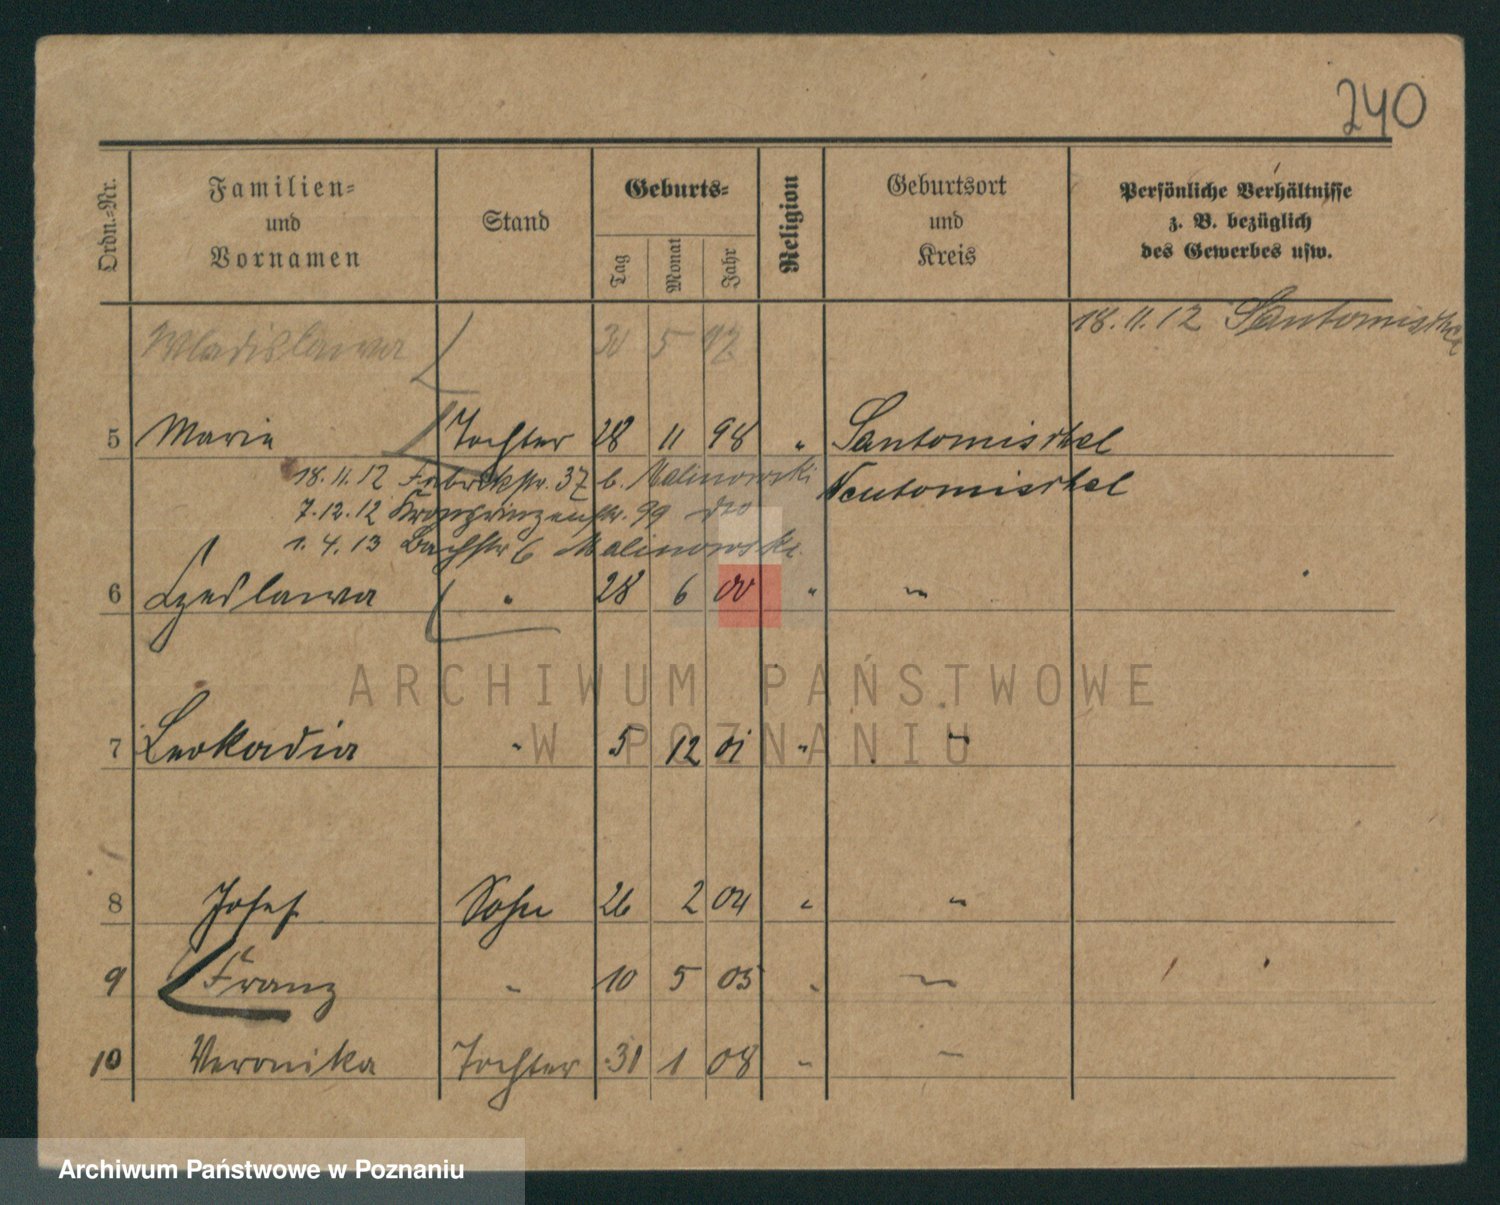 240
Ordn.=Nr.
Familien=
und
Vornamen
Stand
Geburts=
Tag
Monat
Jahr
Religion
Geburtsort
und
Kreis
Persönliche Verhältnisse
z. B. bezüglich
des Gewerbes usw.
18.11.12 Santomischel
Wladislawa 30 5 97
5 Maria Tochter 28 11 98 " Santomischel
18.11.12 Fabrikstr. 37 b. Malinowski Neutomischel
7.12.12 Kronprinzenstr. 99 dto
1.4.13 Bachstr 6 Malinowski
6 Czeslawa " 28 6 00 " "
ARCHIWUM PAŃSTWOWE
W POZNANIU
7 Leokadia " 5 12 01 " "
8 Josef Sohn 26 2 04 " "
9 Franz " 10 5 05 " "
10 Veronika Tochter 31 1 08 " "
Archiwum Państwowe w Poznaniu